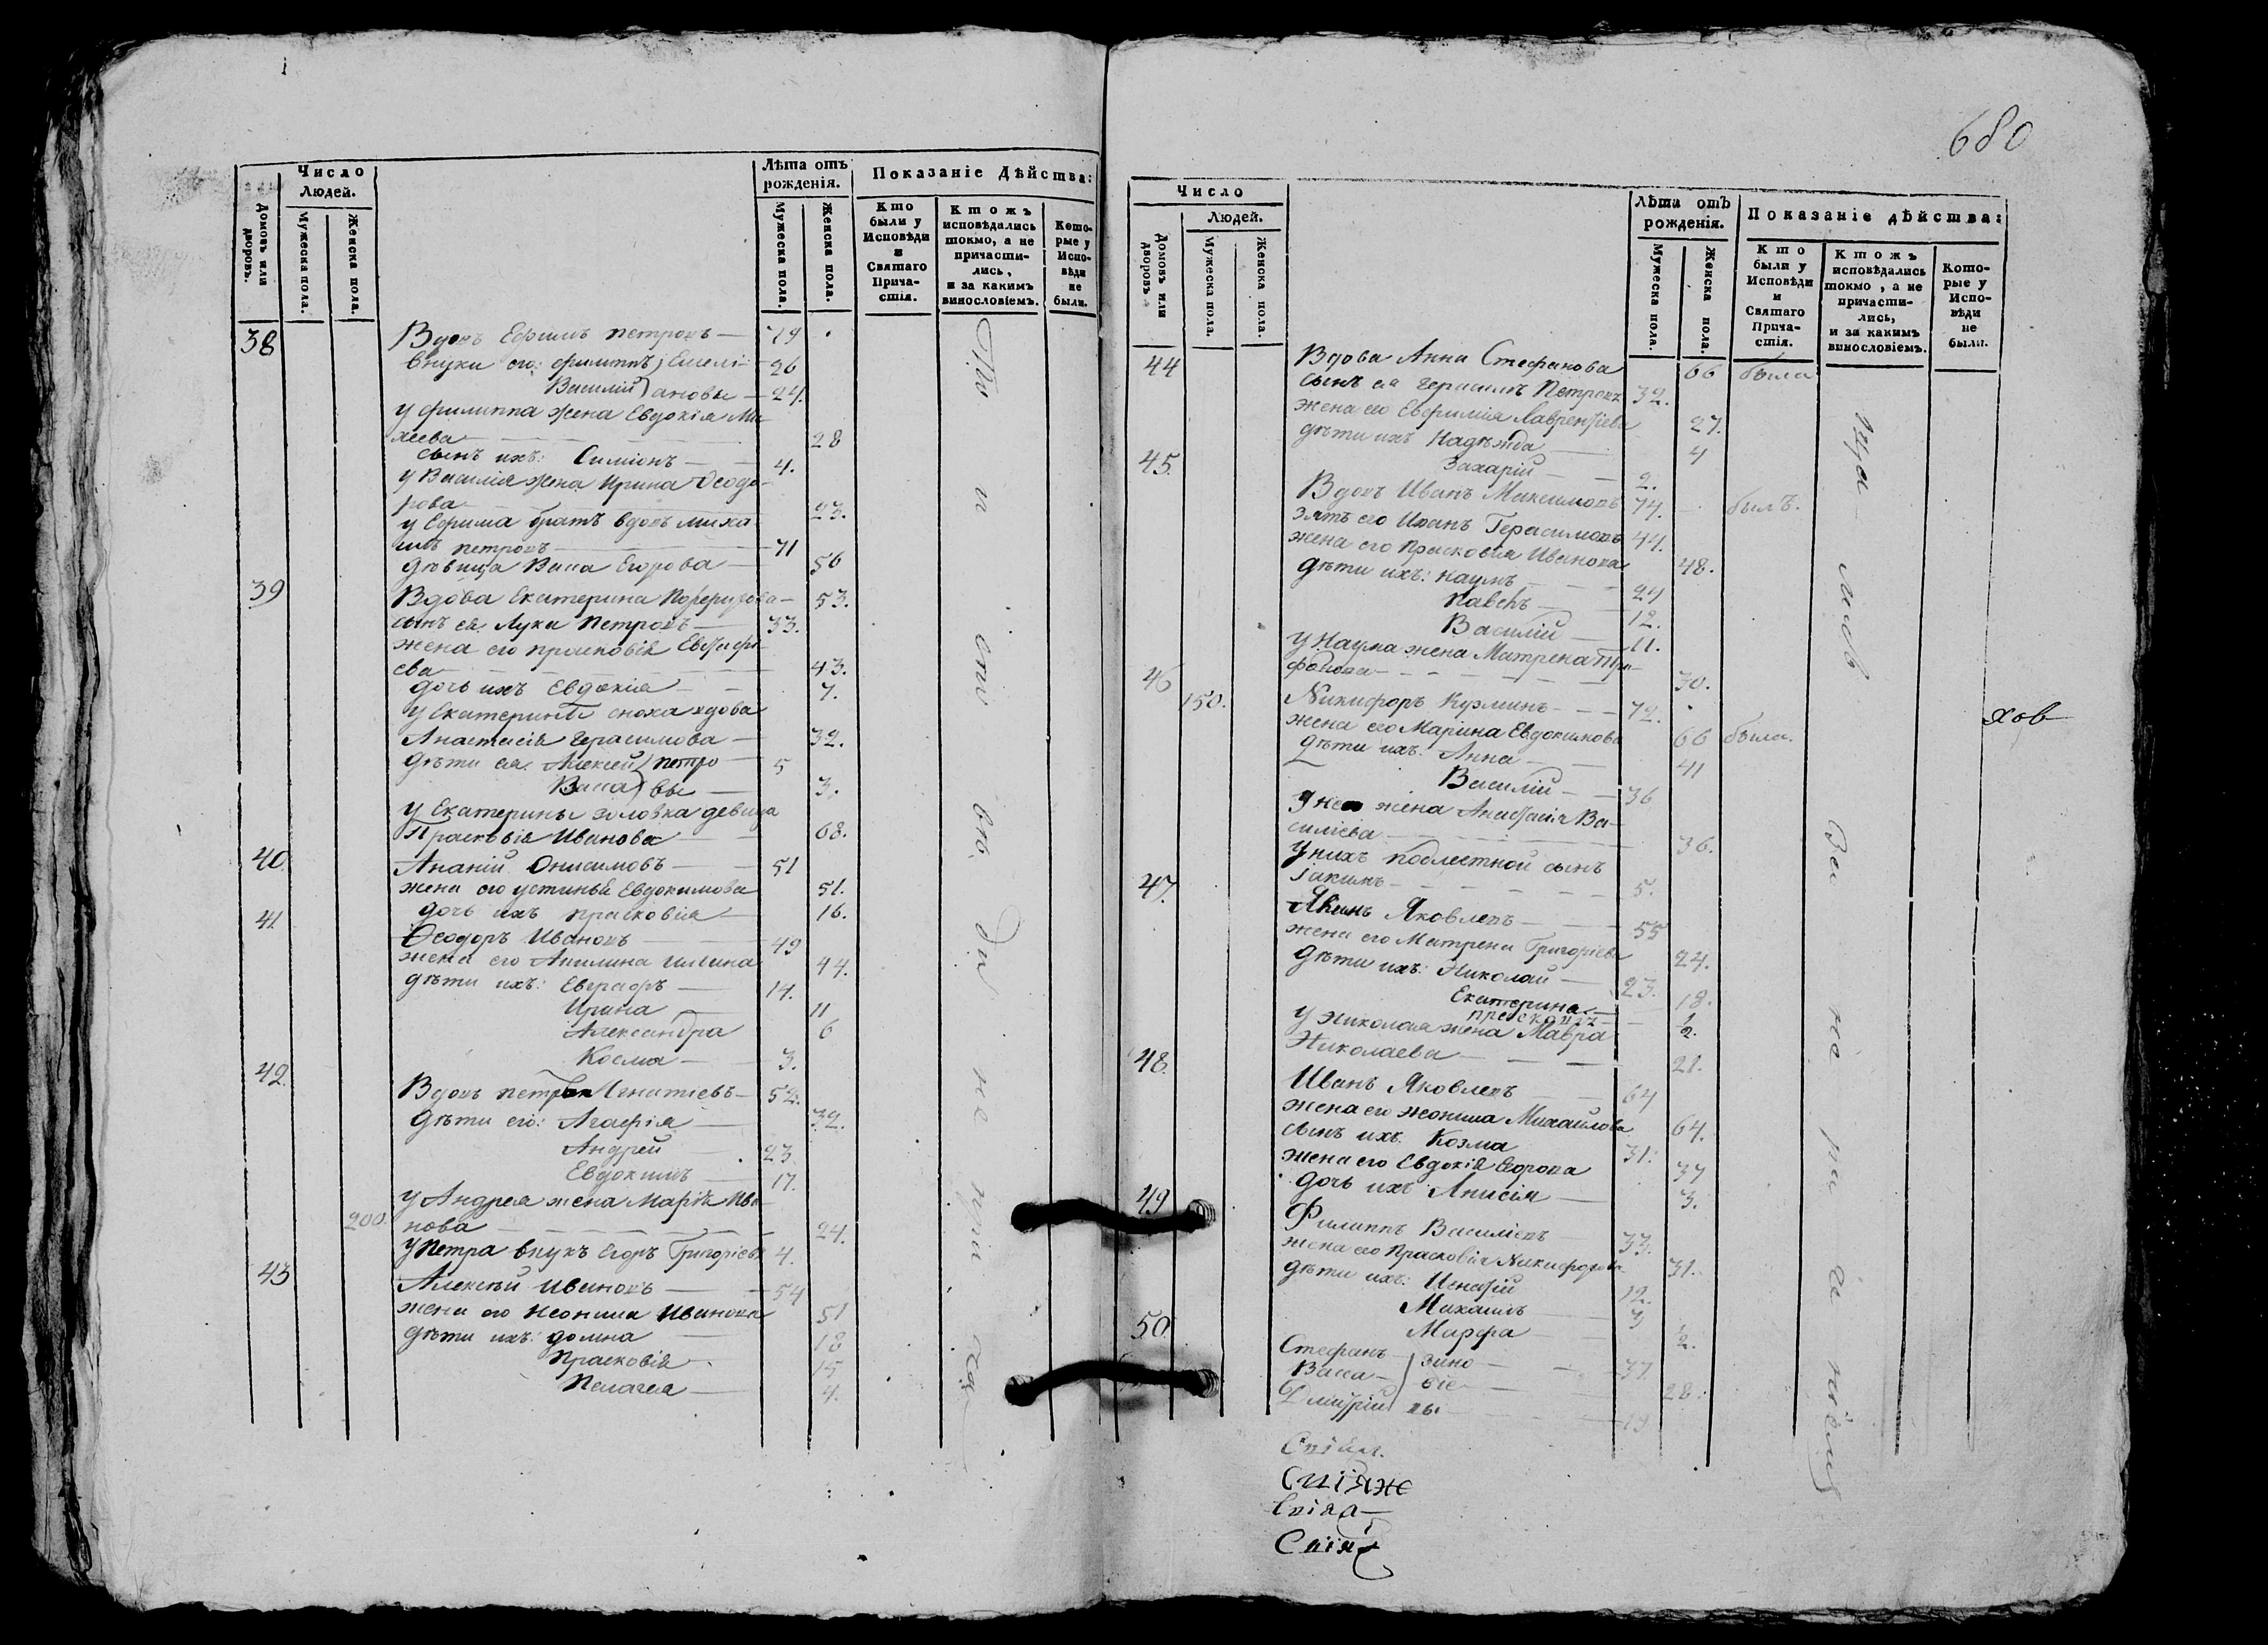 680
Число
Людей.
Домовъ или дворовъ.
Мужеска пола.
Женска пола.
Лѣта отъ рожденія.
Мужеска пола.
Женска пола.
Показаніе Дѣйства:
Кто были у Исповѣди и Святаго Прича-стія.
Ктожъ исповѣдались токмо, а не причасти-лись, и за какимъ винословіемъ.
Кото-рые у Испо-вѣди не были.
38 Вдовъ Ефимъ Петровъ — 79
внуки его: Филиппъ } Емелі- 26
Василій } ановы — 24.
у Филиппа жена Евдокія Ми-
хеева 28
сынъ ихъ: Симіонъ — 4.
у Василія жена Ирина Ѳеодо-
рова 23.
у Ефима братъ вдовъ Миха
илъ Петровъ — 71
дѣвица Васса Егорова — 56
39 Вдова Екатерина Порфирова — 53.
сынъ ея Лука Петровъ — 33.
жена его Прасковія
ева 43.
дочь ихъ Евдокія — 7.
у Екатерины сноха вдова
Анастасія Герасимова — 32.
дѣти ея: Алексей } Петро — 5
Васса } вы — 3.
у Екатерины золовка девица
Прасковія Иванова 68.
40 Ананій Онисимовъ — 51
жена его Устинья Евдокимова 51.
дочь ихъ Прасковія — 16.
41 Ѳеодоръ Ивановъ — 49
жена его Акилина Ильина 44.
дѣти ихъ: Евграфъ — 14.
Ирина — 11
Александра 6
Косма — 3.
42 Вдовъ Петръ Игнатіевъ — 52.
дѣти его: Агафія — 32.
Андрей 23
Евдокимъ — 17.
у Андрея жена Марія Ива-
200. нова 24.
у Петра внукъ Егоръ Григоріевъ 4.
43 Алексѣй Ивановъ — 54
жена его Неонила Иванова 51
дѣти ихъ: Домна — 18
Прасковія — 15
Пелагея — 4.
Число
Людей.
Домовъ или дворовъ.
Мужеска пола.
Женска пола.
Лѣта отъ рожденія.
Мужеска пола.
Женска пола.
Показаніе дѣйства:
Кто были у Исповѣди и Святаго Прича-стія.
Ктожъ исповѣдались токмо, а не причасти-лись, и за какимъ винословіемъ.
Кото-рые у Испо-вѣди не были.
44 Вдова Анна Стефанова 66 была
сынъ ея Герасимъ Петровъ 32.
жена его Евфимія Лаврентіева 27.
дѣти ихъ Надѣжда 4
Захарій — 2.
45. Вдовъ Иванъ Максимовъ 74. былъ.
зять его Иванъ Герасимовъ 44.
жена его Прасковія Иванова 48.
дѣти ихъ: Наумъ 24
Павелъ — 12.
Василій — 11.
у Наума жена Матрена Три-
фонова — 30.
46 150. Никифоръ Кузминъ — 72.
жена его Марина Евдокимова 66 была.
дѣти ихъ: Анна — 41
Василій — 36
у него жена Анастасія Ва-
силіева 36.
у нихъ поместной сынъ
Іакимъ — 5.
47. Яковлевъ — 55
жена его Матрена Григоріева 24.
дѣти ихъ: Николай — 23.
Екатерина — 18.
½
у Николая жена Мавра
Николаева — 21.
48. Иванъ Яковлевъ 64
жена его Неонила Михайлова 64.
сынъ ихъ Козма 31.
жена его Евдокія Егорова 37
дочь ихъ Анисія — 3.
49 Филиппъ Василіевъ 33.
жена его Прасковія Никифорова 31.
дѣти ихъ: 12.
Михаилъ
Марфа ½.
50 Стефанъ } Зино — 37
Васса } віе — 28.
Дмитрій } вы
хов